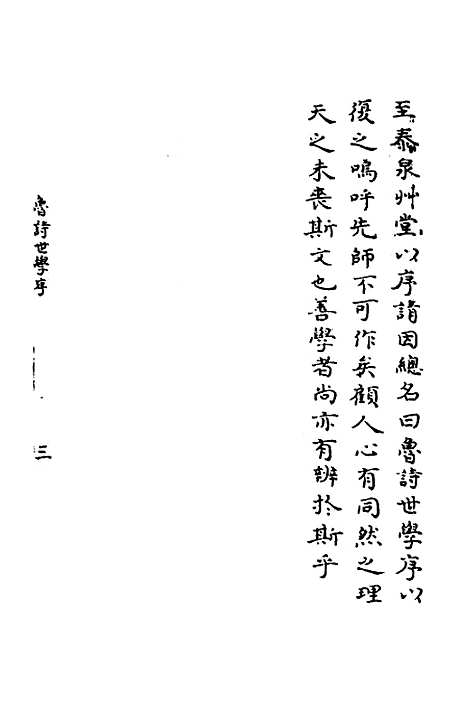 至泰泉艸堂以序請因總名曰魯詩世學序以
復之嗚呼先師不可作矣顧人心有同然之理
天之未喪斯文也善學者尚亦有辨於斯乎
魯詩世學序
三